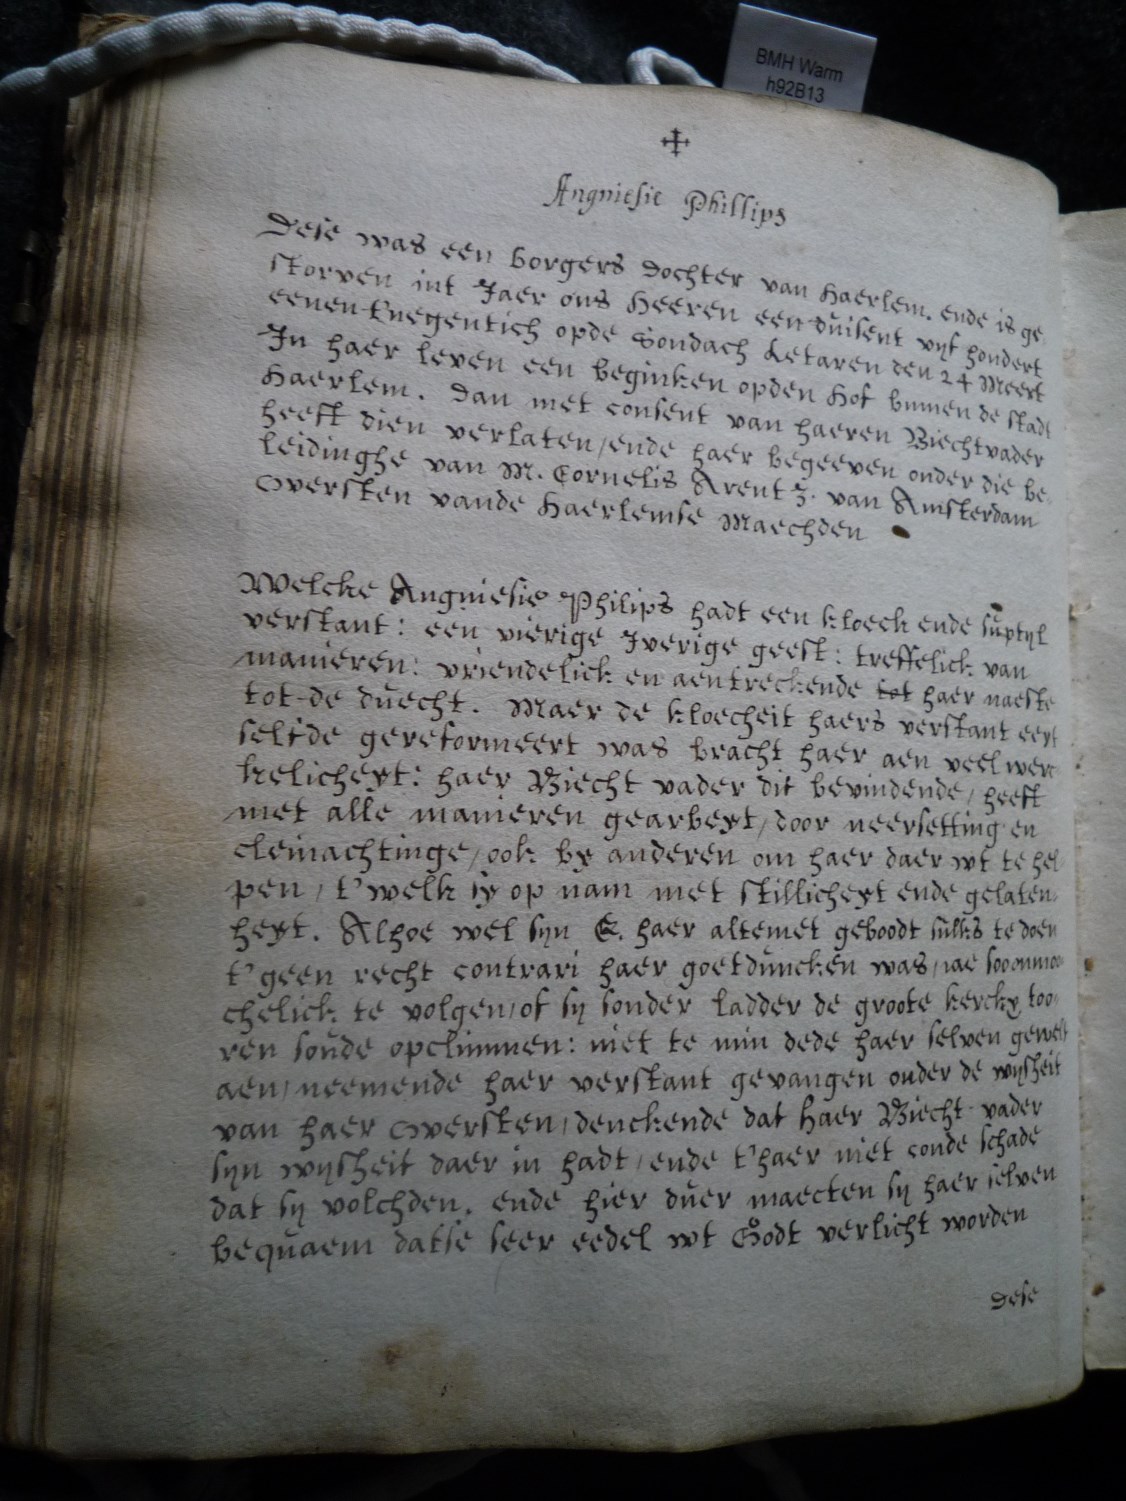 BMH Warm
h92B13
Angniesie Phillips
Dese was een borgers dochter van Haerlem. ende is ge
storven int Jaer ons Heeren een duisent vijf hondert
eenen-tnegentich opde Sondach Letaren den 24 Meert
In haer leven een beginken opden Hof binnen de stadt
Haerlem. Dan met consent van haeren Biechtvader
heeft dien verlaten, ende haer begeeven onder die be
leidinghe van M. Cornelis Arentz. van Amsterdam
Oversten vande Haerlemse Maechden
Welcke Angniesie Philips hadt een kloeck ende suptyl
verstant: een vierige Iverige geest: treffelick van
manieren: vriendelick en aentreckende tot haer naeste
tot de duecht. Maer de kloecheit haers verstant eert
selfde gereformeert was bracht haer aen veel werc
kelicheyt: haer Biecht vader dit bevindende, heeft
met alle manieren gearbeyt, door neersetting en
cleinachtinge, ook by anderen om haer daer wt te hel
pen, t'welk sy op nam met stillicheyt ende gelaten
heyt. Alhoe wel syn E. haer altemet geboodt sulks te doen
t'geen recht contrari haer goetduncken was, iae soo onmo
chelick te volgen, of sy sonder ladder de groote kercky too
ren soude opclimmen: niet te min dede haer selven gewelt
aen, neemende haer verstant gevangen onder de wysheit
van haer Oversten, denckende dat haer Biecht vader
syn wysheit daer in hadt, ende t'haer niet conde schade
dat sy volchden. ende hier duer maecten sy haer selven
bequaem datse seer eedel wt Godt verlicht worden
dese